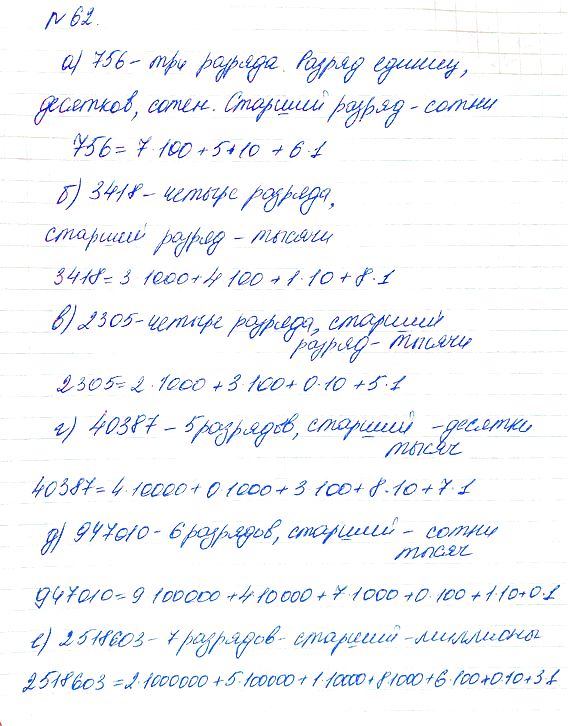 № 62.
а) 756 - три разряда. Разряд единиц,
десятков, сотен. Старший разряд - сотни
756 = 7·100 + 5+10 + 6·1
б) 3418 - четыре разряда,
старший разряд - тысячи
3418 = 3 1000 + 4 100 + 1·10 + 8·1
в) 2305 - четыре разряда, старший
разряд - тысячи
2305 = 2·1000 + 3·100 + 0·10 + 5·1
г) 40387 - 5 разрядов, старший - десятки
тысяч
40387 = 4·10000 + 0·1000 + 3 100 + 8·10 + 7·1
д) 947010 - 6 разрядов, старший - сотни
тысяч
947010 = 9 100000 + 4·10000 + 7·1000 + 0·100 + 1·10 + 0·1
е) 2518603 - 7 разрядов - старший - миллионы
2518603 = 2·1000000 + 5·100000 + 1·10000 + 8·1000 + 6·100 + 0·10 + 3·1